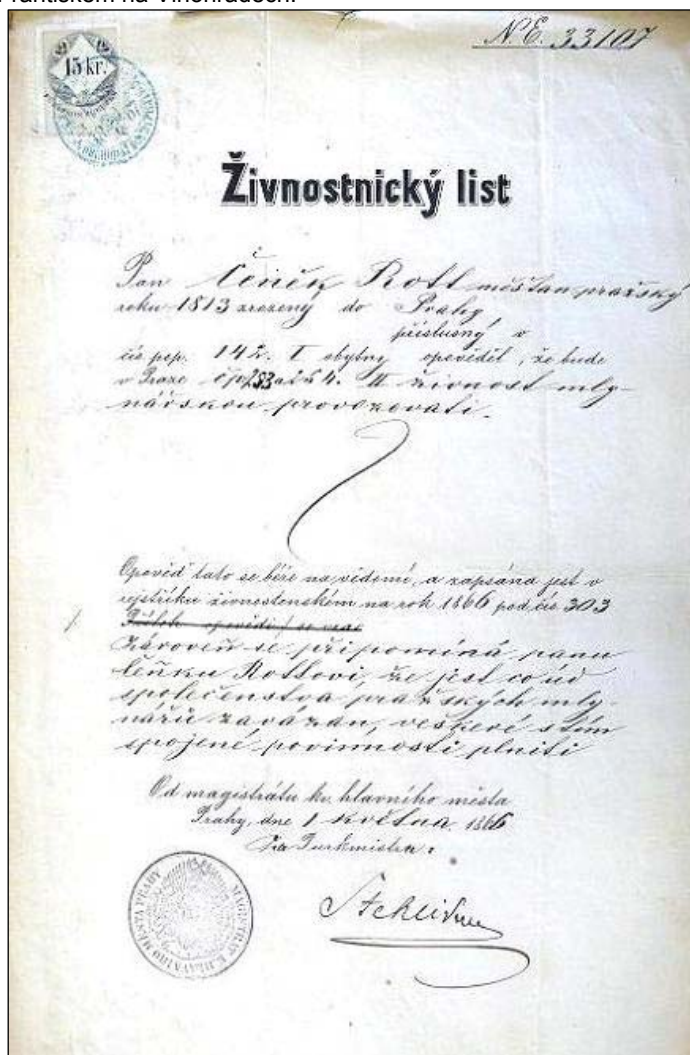 Františkem na Vinohradech.
N.E. 33107
15 kr.
Živnostnický list
Pan Čeněk Rott měšťan pražský
roku 1813 zrozený do Prahy
příslušný v
čís pop. 142. I obytný opověděl, že bude
v Praze II živnost mly-
nářskou provozovati.
Opověď tato se béře na vědomí, a zapsána jest v
rejstříku živnostenském na rok 1866 pod čís 303
Zároveň se připomíná panu
Čeňku Rottovi, že jest co úd
společenstva pražských mly-
nářů zavázán, veškeré s tím
spojené povinnosti plniti
Od magistrátu kr. hlavního města
Prahy, dne 1 Května 1866
Za Purkmistra:
MAGISTRÁT K. HLAVNÍHO MĚSTA PRAHY